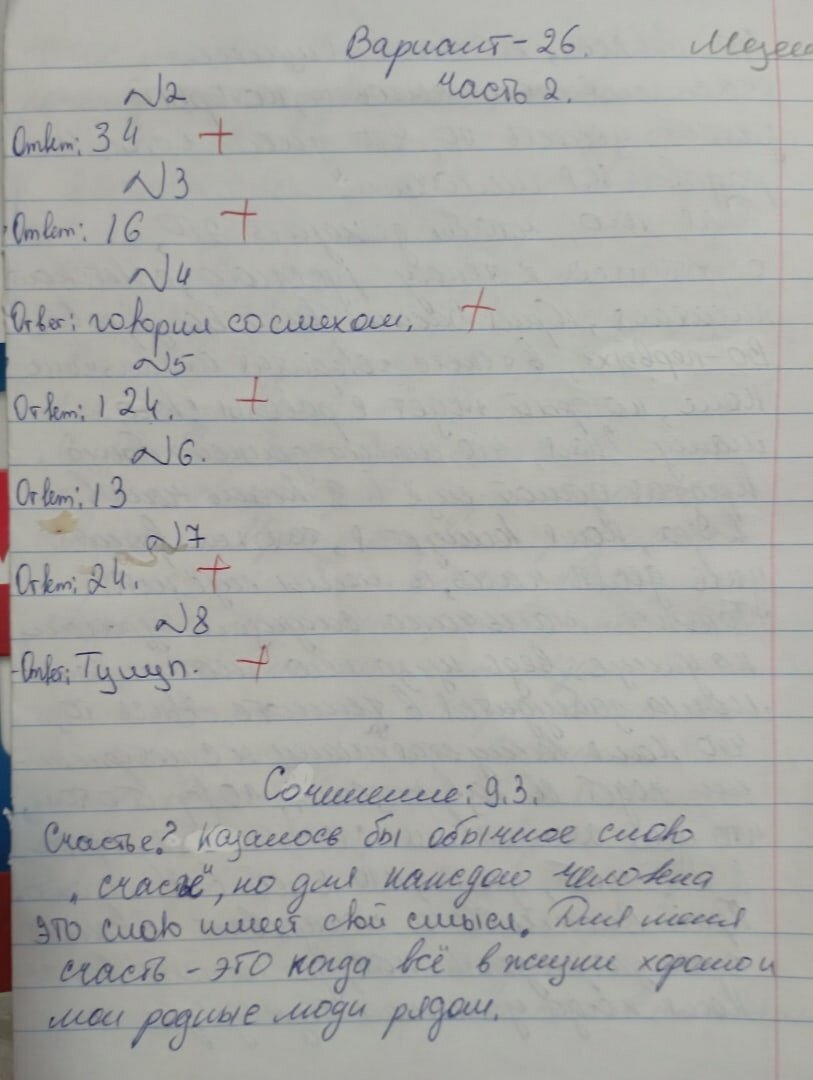 Вариант - 26.
Часть 2.
№2
Ответ: 34 +
№3
Ответ: 16 +
№4
Ответ: говорил со смехом. +
№5
Ответ: 124. +
№6.
Ответ: 13
№7
Ответ: 24. +
№8
Ответ: Тулуп. +
Сочинение: 9.3.
Счастье? Казалось бы обычное слово
„счасье", но для каждого человека
это слово имеет свой смысл. Для меня
счасть - это когда всё в жизни хорошо и
мои родные люди рядом.